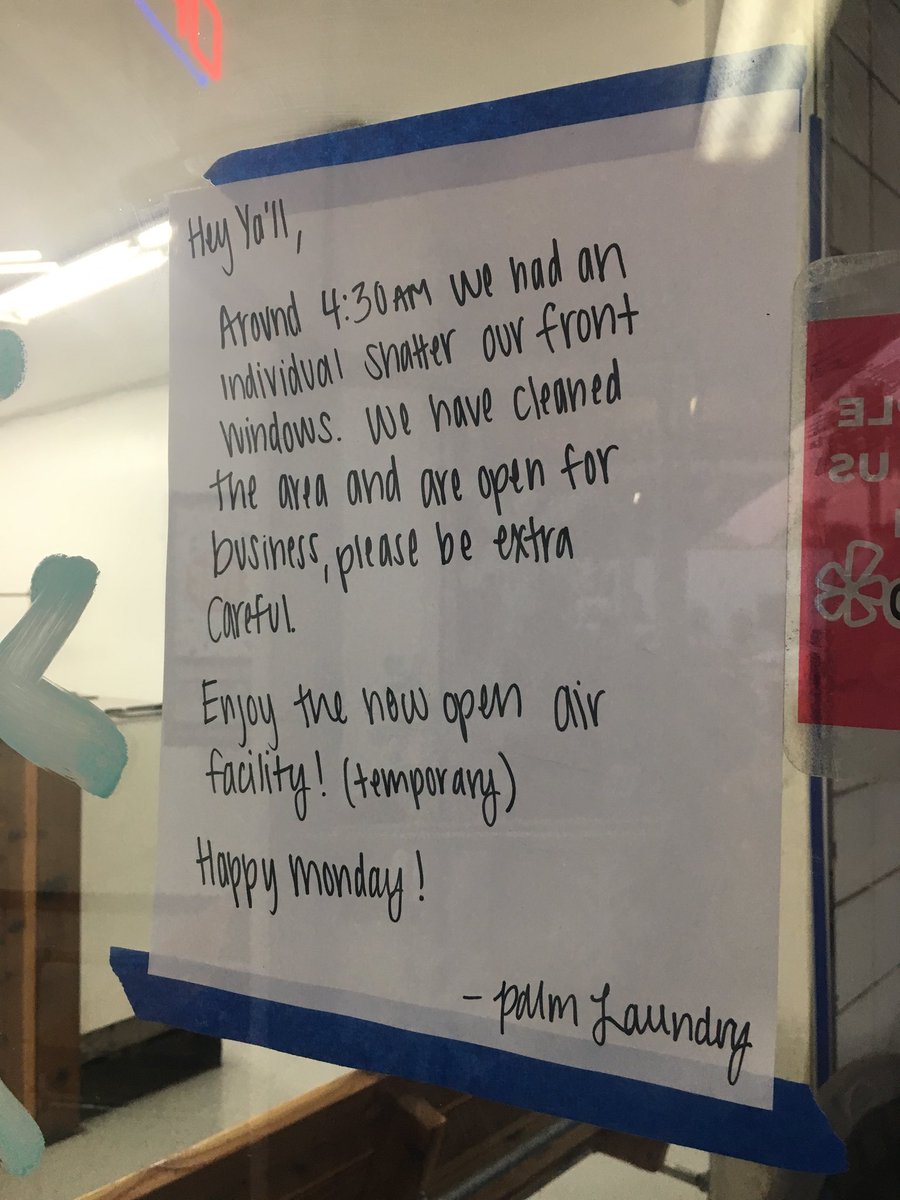 Hey Ya'll,
Around 4:30AM we had an
individual shatter our front
windows. We have cleaned
the area and are open for
business, please be extra
careful.
Enjoy the now open air
facility! (temporary)
Happy Monday!
- Palm Laundry
US